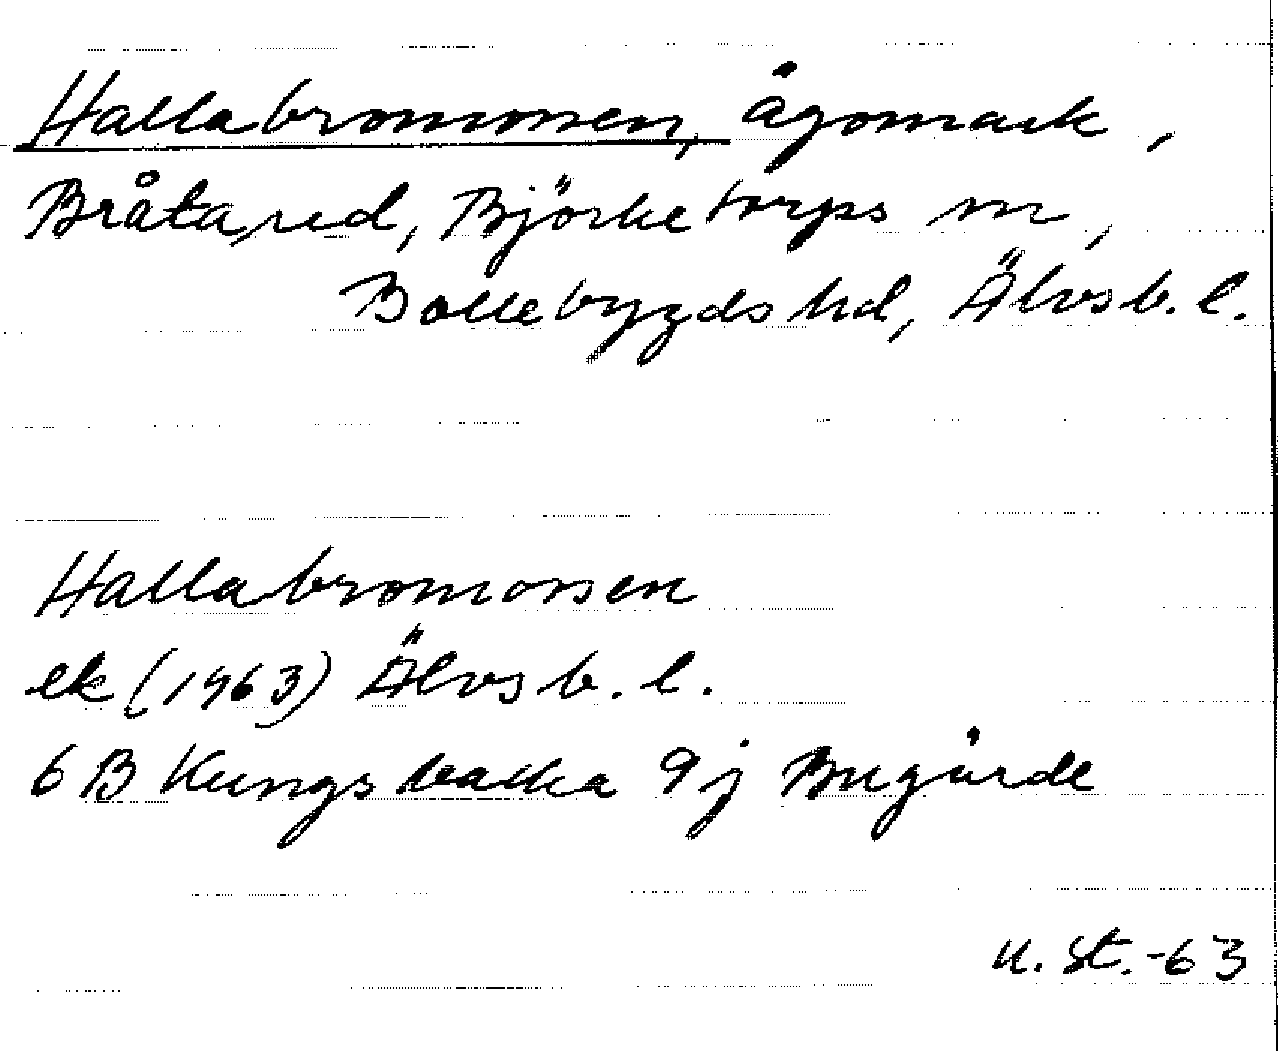 Hallabromossen, ägomark,
Bråtared, Björketorps sn,
Bollebygds hd, Älvsb. l.
Hallabromossen
ek (1963) Älvsb. l.
6 B Kungsbacka 9j Bugärde
U. St. -63